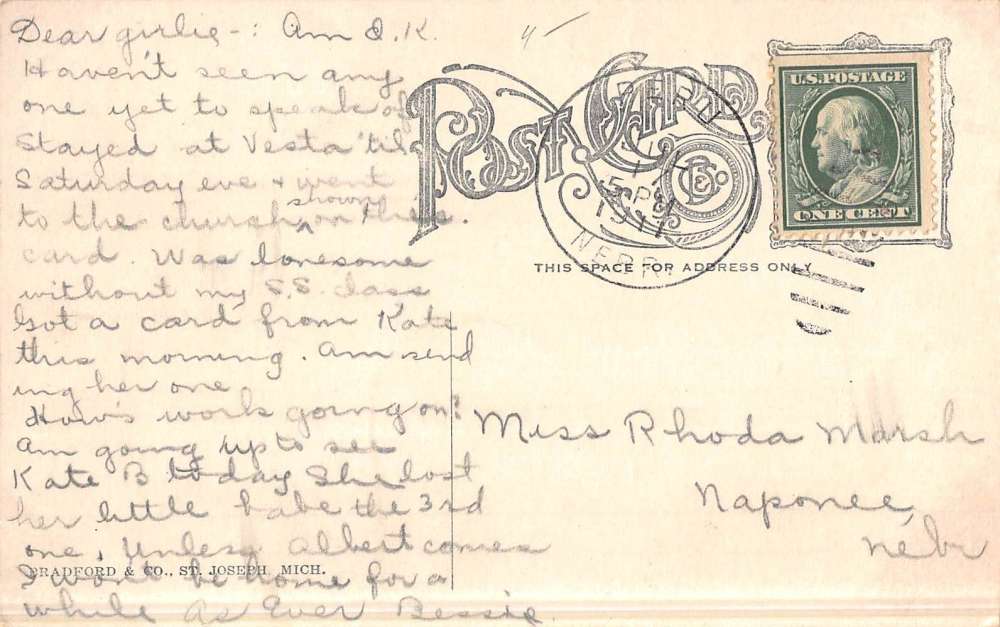 Dear girlie -: Am O.K.
Haven't seen any
one yet to speak of
Stayed at Vesta 'til
Saturday eve + went
to the church shown on this
card. Was lonesome
without my S.S. class
Got a card from Kate
this morning. Am send
ing her one
How's work going on?
Am going up to see
Kate B today She lost
her little babe the 3rd
one. Unless Albert comes
I won't be home for a
while As Ever Bessie
BRADFORD & CO., ST. JOSEPH, MICH.
Post Card
B & Co
THIS SPACE FOR ADDRESS ONLY
PERU
5 PM
1911
NEBR.
U.S. POSTAGE
ONE CENT
Miss Rhoda Marsh
Naponee,
Nebr